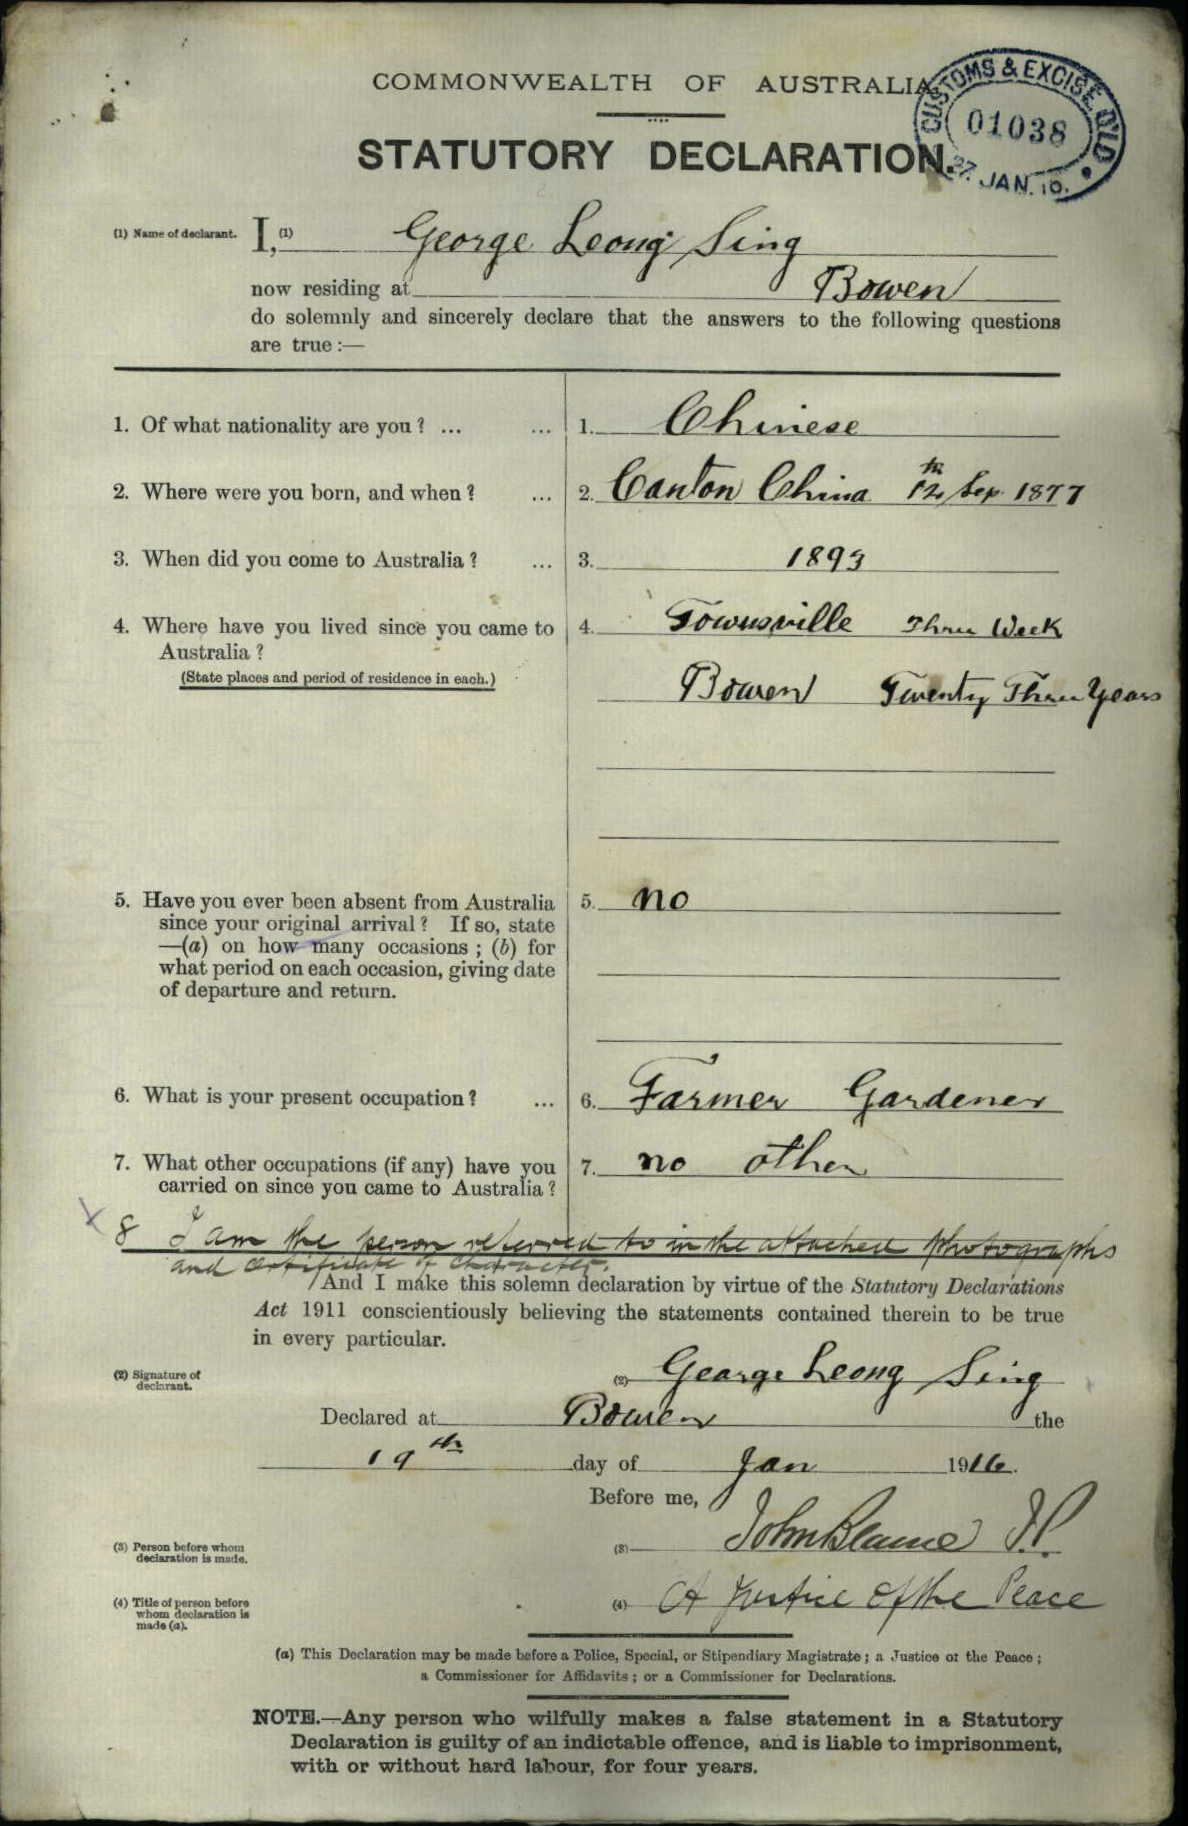 COMMONWEALTH OF AUSTRALIA.
CUSTOMS & EXCISE QLD
01038
27. JAN. 16.
STATUTORY DECLARATION.
(1) Name of declarant. I, (1) George Leong Sing
now residing at Bowen
do solemnly and sincerely declare that the answers to the following questions
are true :—
1. Of what nationality are you ? ... ... 1. Chinese
2. Where were you born, and when ? ... 2. Canton China 12th Sep 1877
3. When did you come to Australia ? ... 3. 1893
4. Where have you lived since you came to 4. Townsville Three Week
Australia ?
(State places and period of residence in each.) Bowen Twenty Three Years
5. Have you ever been absent from Australia 5. no
since your original arrival ? If so, state
—(a) on how many occasions ; (b) for
what period on each occasion, giving date
of departure and return.
6. What is your present occupation ? ... 6. Farmer Gardener
7. What other occupations (if any) have you 7. no other
carried on since you came to Australia ?
x 8 I am the person referred to in the attached photographs
and certificate of character.
And I make this solemn declaration by virtue of the Statutory Declarations
Act 1911 conscientiously believing the statements contained therein to be true
in every particular.
(2) Signature of (2) George Leong Sing
declarant.
Declared at Bowen the
19th day of Jan 1916.
Before me,
(3) Person before whom (3) John J.P.
declaration is made.
(4) Title of person before (4) A Justice of the Peace
whom declaration is
made (a).
(a) This Declaration may be made before a Police, Special, or Stipendiary Magistrate ; a Justice of the Peace ;
a Commissioner for Affidavits ; or a Commissioner for Declarations.
NOTE.—Any person who wilfully makes a false statement in a Statutory
Declaration is guilty of an indictable offence, and is liable to imprisonment,
with or without hard labour, for four years.